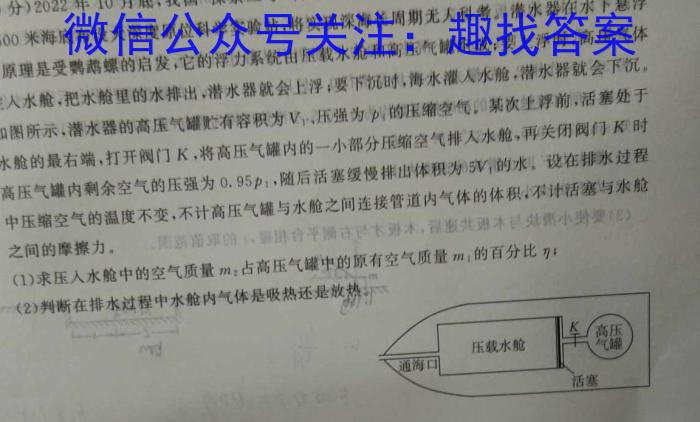 分)2022年10月底,我国
微信公众号关注:趣找答案
原理是受鹦鹉螺的启发,它的浮力系统由压载水舱和高压气罐
入水舱,把水舱里的水排出,潜水器就会上浮;要下沉时,海水灌入水舱,潜水器就会下沉。
如图所示,潜水器的高压气罐贮有容积为V₁、压强为p₁的压缩空气。某次上浮前,活塞处于
水舱的最右端,打开阀门K,将高压气罐内的一小部分压缩空气排入水舱,再关闭阀门K时
高压气罐内剩余空气的压强为0.95p₁,随后活塞缓慢排出体积为5V₁的水。设在排水过程
中压缩空气的温度不变,不计高压气罐与水舱之间连接管道内气体的体积,不计活塞与水舱
之间的摩擦力。
(1)求压入水舱中的空气质量m₂占高压气罐中的原有空气质量m₁的百分比η;
(2)判断在排水过程中水舱内气体是吸热还是放热。
通海口
压载水舱
K
高压
气罐
活塞